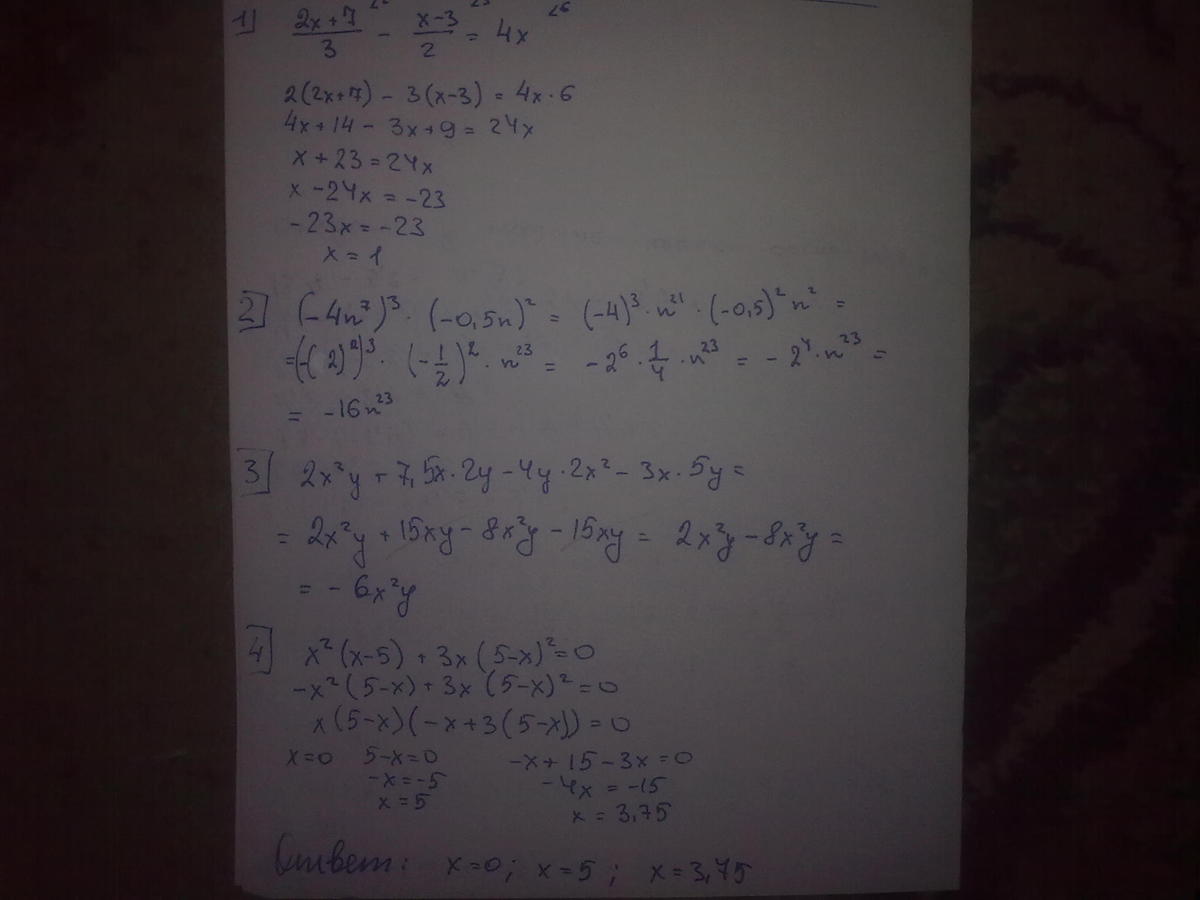 1) (2x+7)/3 ∠2 - (x-3)/2 ∠3 = 4x ∠6
2(2x+7) - 3(x-3) = 4x·6
4x+14 - 3x+9 = 24x
x + 23 = 24x
x - 24x = -23
-23x = -23
x = 1
2) (-4n⁷)³ · (-0,5n)² = (-4)³ · n²¹ · (-0,5)² n² =
= (-(2)²)³ · (-1/2)² · n²³ = -2⁶ · 1/4 · n²³ = -2⁴ · n²³ =
= -16n²³
3) 2x²y + 7,5x·2y - 4y·2x² - 3x·5y =
= 2x²y + 15xy - 8x²y - 15xy = 2x²y - 8x²y =
= - 6x²y
4) x²(x-5) + 3x(5-x)² = 0
-x²(5-x) + 3x(5-x)² = 0
x(5-x)(-x+3(5-x)) = 0
x=0 5-x=0 -x+15-3x=0
-x=-5 -4x = -15
x=5 x = 3,75
Ответ: x=0; x=5; x=3,75